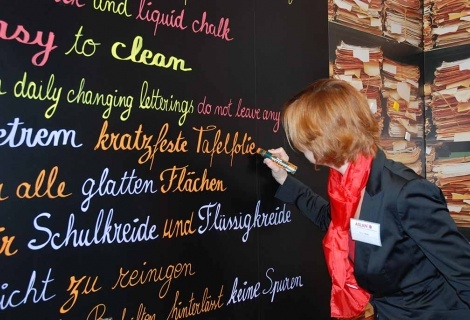 and liquid chalk
easy to clean
daily changing letterings do not leave any
extrem kratzfeste Tafelfolie
alle glatten Flächen
für Schulkreide und Flüssigkreide
leicht zu reinigen
hinterlässt keine Spuren